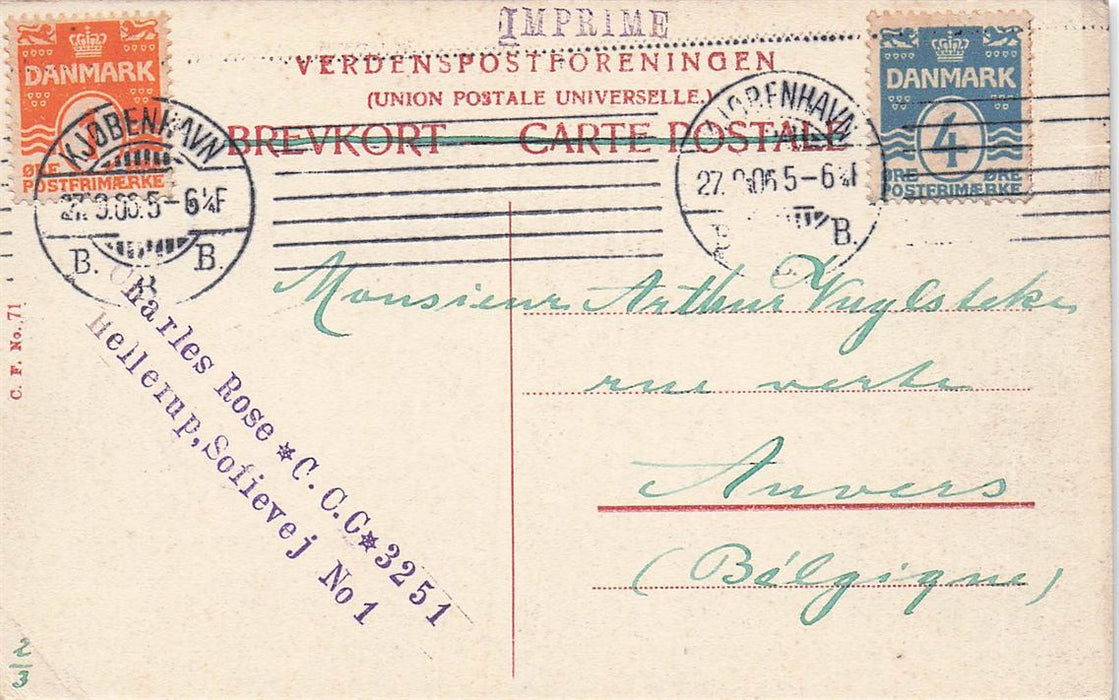 IMPRIME
VERDENSPOSTFORENINGEN
(UNION POSTALE UNIVERSELLE.)
BREVKORT — CARTE POSTALE
DANMARK
ØRE
POSTFRIMÆRKE
KJØBENHAVN
5-6¼F
B. B. B.
DANMARK
4
ØRE ØRE
POSTFRIMÆRKE
KJØBENHAVN
5-6¼F
B.
Monsieur Arthur Vuylsteke
rue verte
Anvers
(Bélgique)
Charles Rose * C.C.C * 3251
Hellerup, Sofievej No 1
C. F. No. 71
2/3